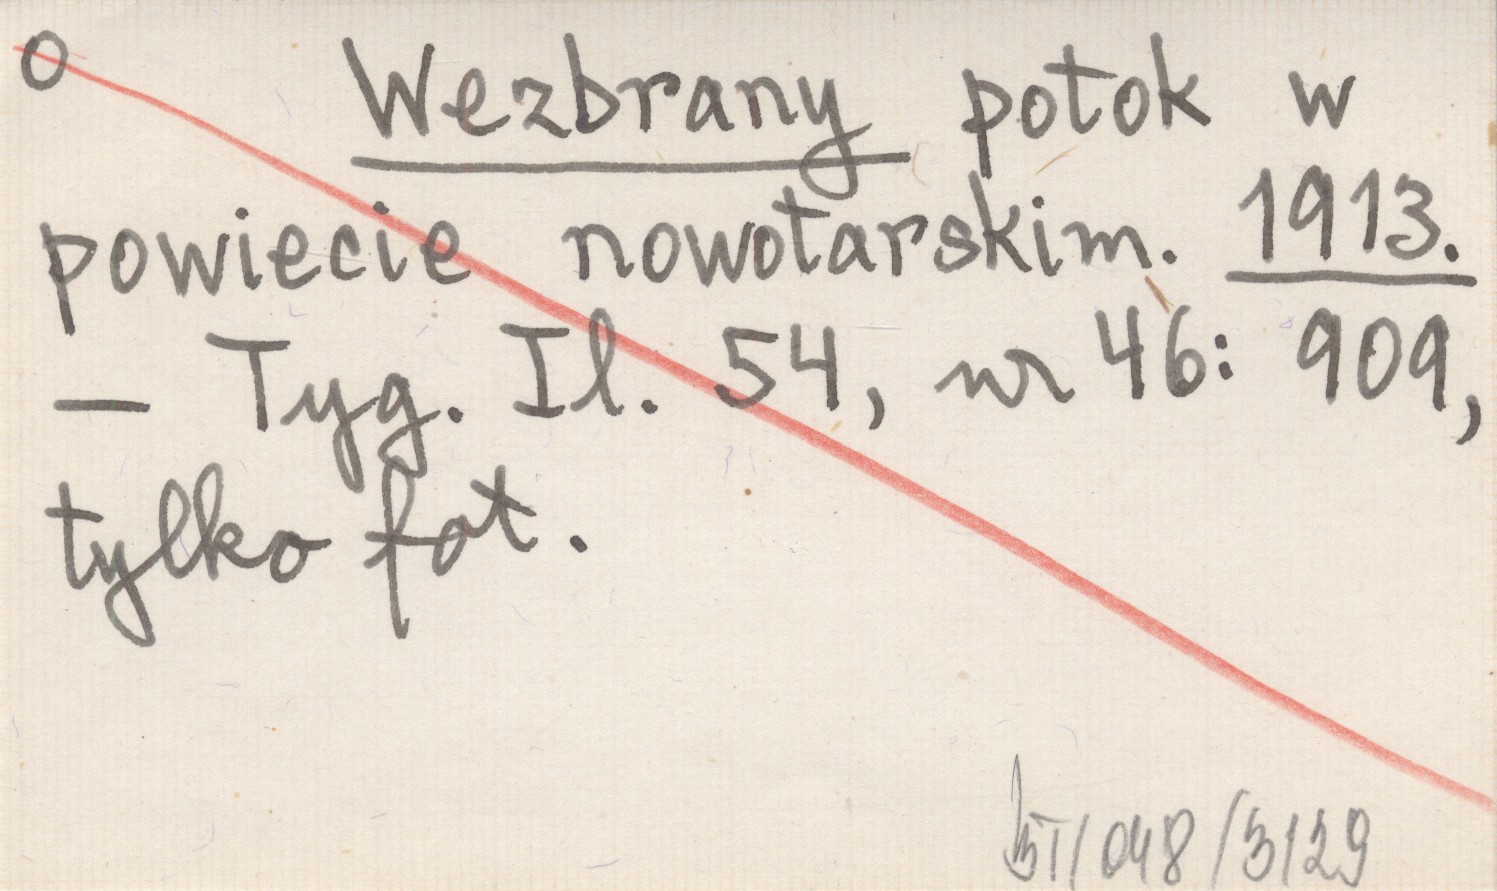 O Wezbrany potok w
powiecie nowotarskim. 1913.
— Tyg. Il. 54, nr 46: 909,
tylko fot.
/048/3129